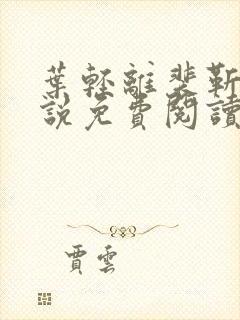 葉輕離裴靳
說免費閱讀
賈雲